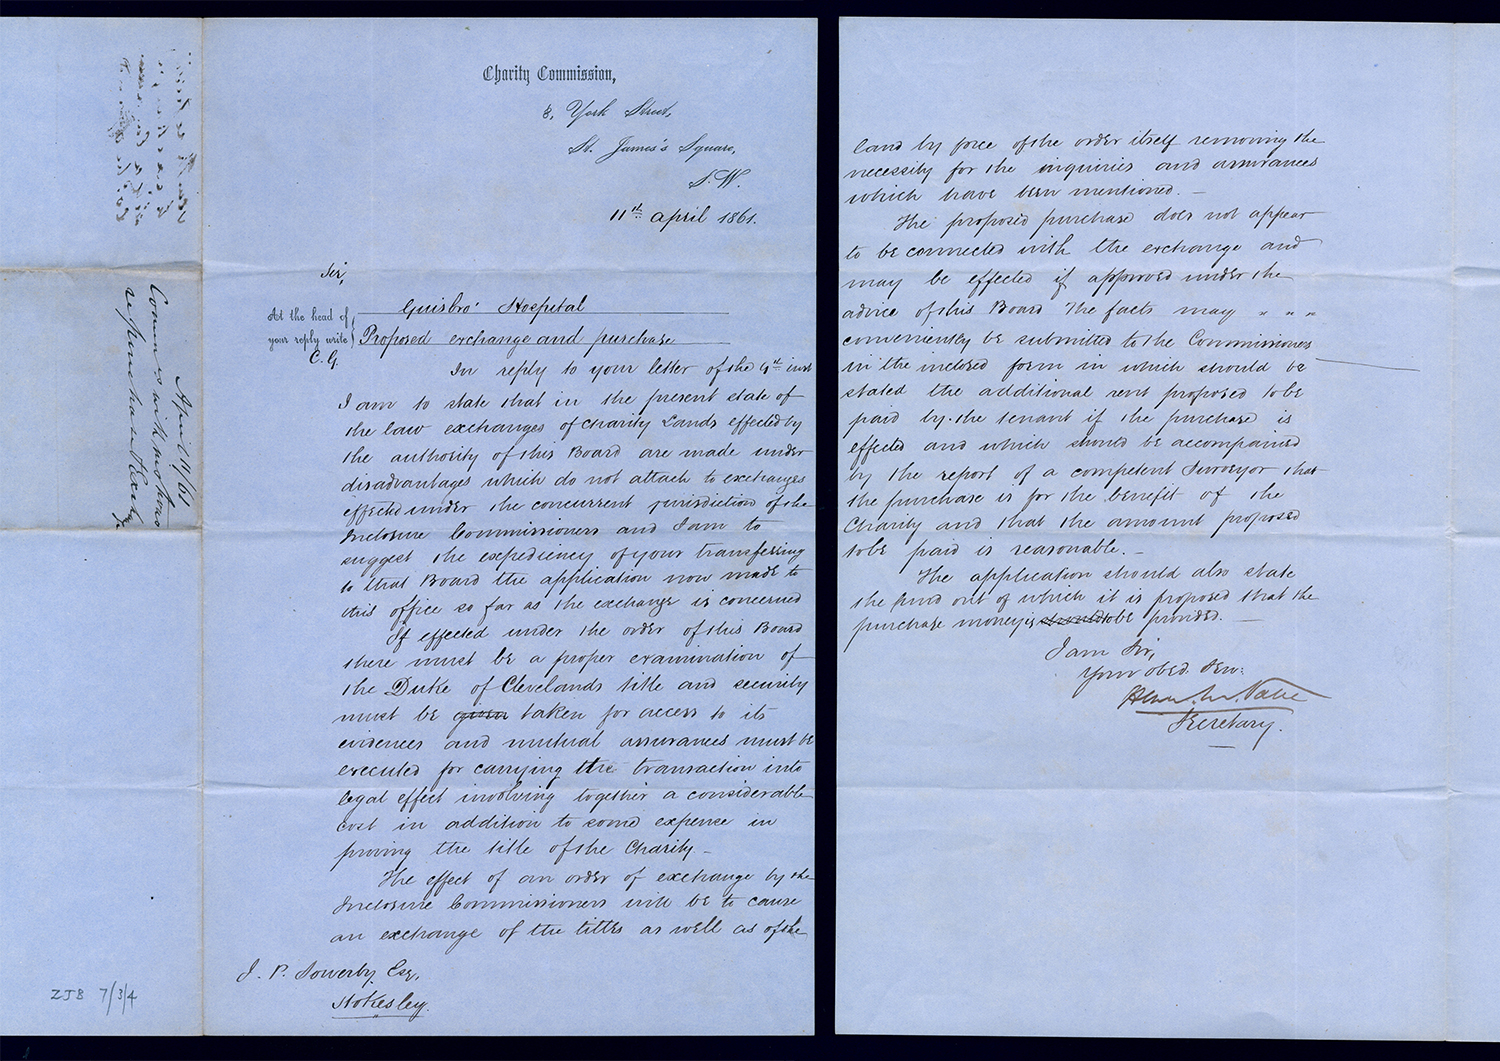 Charity Commission,
8, York Street,
St. James's Square,
S.W.
11th. april 1861.
Sir,
At the head of
your reply write
C. G.
Guisbro' Hospital
Proposed exchange and purchase
In reply to your letter of the 9th. inst
I am to state that in the present state of
the law exchanges of Charity Lands effected by
the authority of this Board are made under
disadvantages which do not attach to exchanges
effected under the concurrent jurisdiction of the
Inclosure Commissioners and I am to
suggest the expediency of your transferring
to that Board the application now made to
this office so far as the exchange is concerned
If effected under the order of this Board
there must be a proper examination of
the Duke of Clevelands title and security
must be given taken for access to its
evidences and mutual assurances must be
executed for carrying the transaction into
legal effect involving together a considerable
cost in addition to some expense in
proving the title of the Charity –
The effect of an order of exchange by the
Inclosure Commissioners will be to cause
an exchange of the titles as well as of the
J. P. Sowerby Esq,
Stokesley.
April 11/61
Commrs with
repurchase &
ZJB 7/3/4
land by force of the order itself removing the
necessity for the inquiries and assurances
which have been mentioned. –
The proposed purchase does not appear
to be connected with the exchange and
may be effected if approved under the
advice of this Board The facts may " " "
conveniently be submitted to the Commissioners
in the inclosed form in which should be
stated the additional rent proposed to be
paid by the tenant if the purchase is
effected and which should be accompanied
by the report of a competent Surveyor that
the purchase is for the benefit of the
Charity and that the amount proposed
to be paid is reasonable. –
The application should also state
the fund out of which it is proposed that the
purchase money is should to be provided. –
I am Sir,
Your obed. Serv:
Secretary.